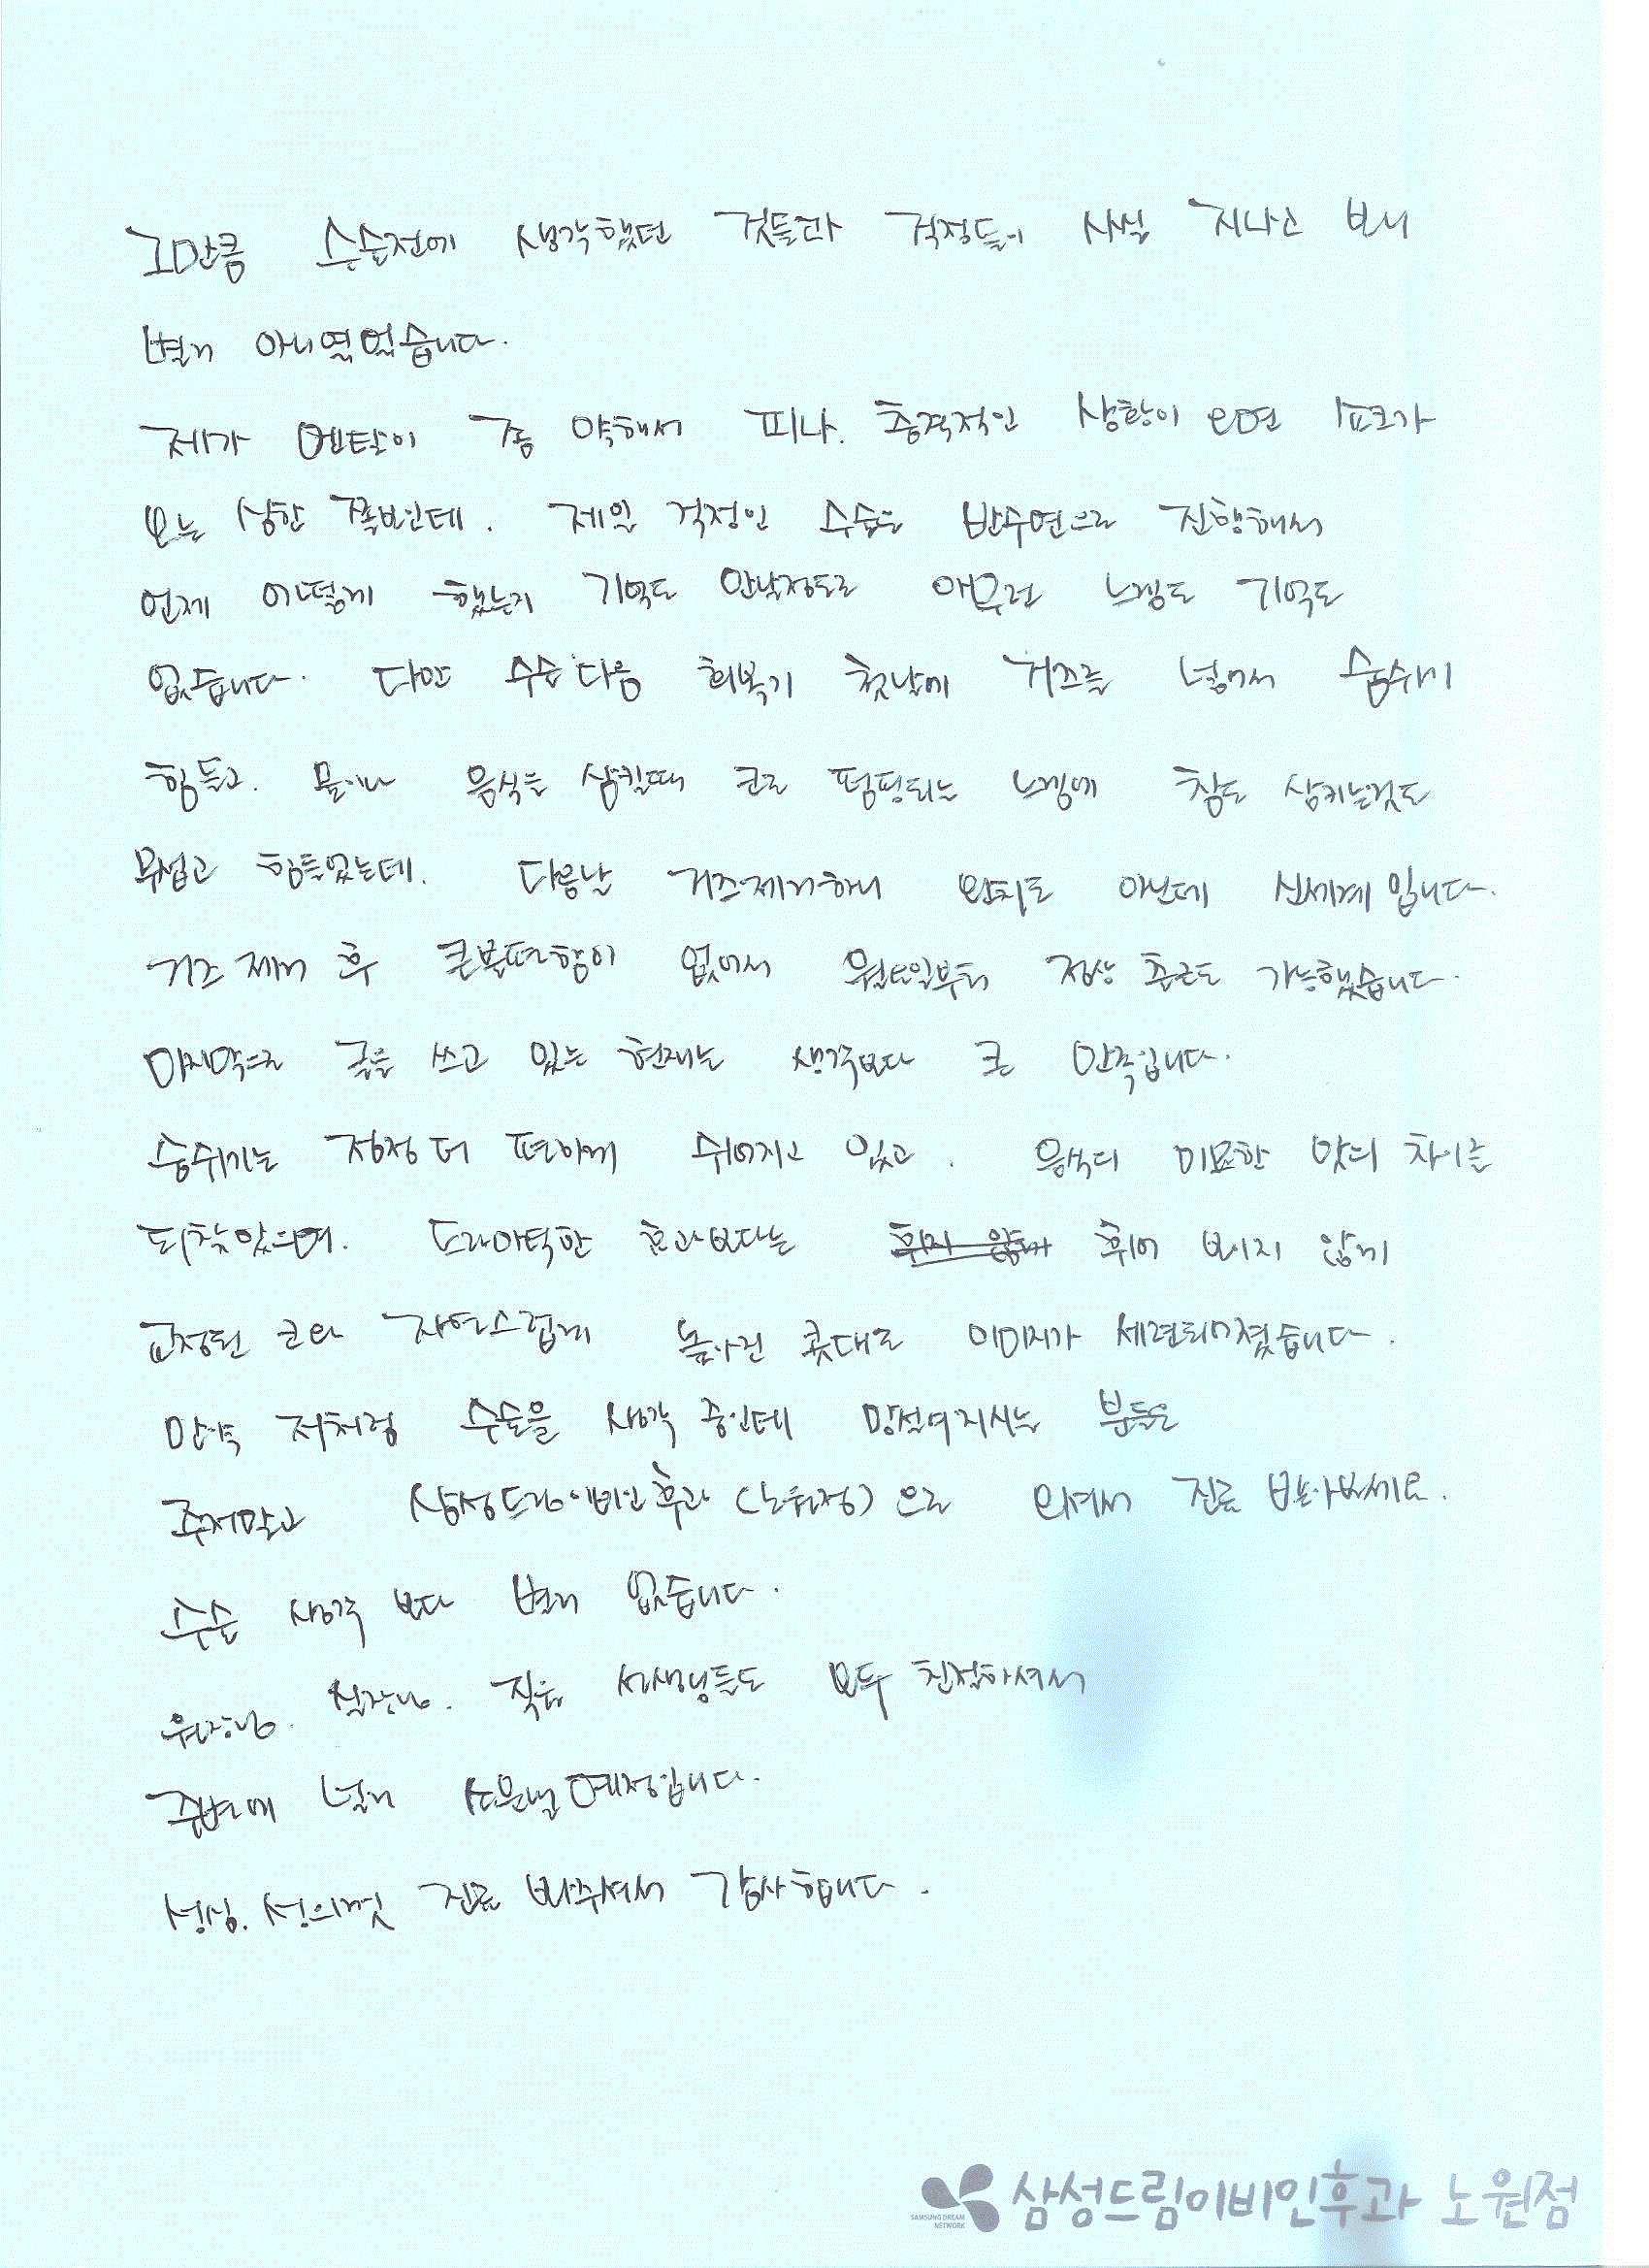 그만큼 수술전에 생각했던 것들과 걱정들이 사실 지나고 보니
별게 아니였었습니다.
제가 멘탈이 좀 약해서 피나, 충격적인 상황이 오면 쇼크가
오는 상한 쪽보인데. 제일 걱정인 수술은 반수면으로 진행해서
언제 어떻게 했는지 기억도 안날정도로 아무런 느낌도 기억도
없습니다. 다만 수술 다음 회복기 첫날에 거즈를 넣어서 숨쉬기
힘들고. 물이나 음식을 삼킬때 코로 펌핑되는 느낌에 침도 삼키는것도
무섭고 힘들었는데. 다음날 거즈제거하니 완치도 아닌데 신세계입니다.
거즈 제거 후 큰불편함이 없어서 월요일부터 정상 출근도 가능했습니다.
마지막으로 글을 쓰고 있는 현재는 생각보다 큰 만족입니다.
숨쉬기는 점점 더 편하게 쉬어지고 있고. 음식의 미묘한 맛의 차이를
되찾았으며. 드라마틱한 효과보다는 휘어 보이지 않게
교정된 코와 자연스럽게 높아진 콧대로 이미지가 세련되어졌습니다.
만약 저처럼 수술을 생각 중인데 망설여지시는 분들은
주저말고 삼성드림이비인후과 (노원점) 으로 오셔서 진료 받아보세요.
수술 생각 보다 별거 없습니다.
원장님. 실장님. 직원 선생님들도 모두 친절하셔서
주변에 널리 소문낼 예정입니다.
성심. 성의껏 진료 봐주셔서 감사합니다.
SAMSUNG DREAM NETWORK 삼성드림이비인후과 노원점